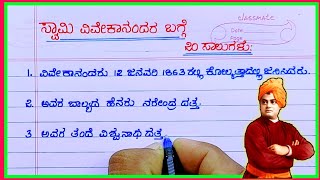 classmate
Date
Page
ಸ್ವಾಮಿ ವಿವೇಕಾನಂದರ ಬಗ್ಗೆ
ಸಾಲುಗಳು:
1. ವಿವೇಕಾನಂದರು 12 ಜನವರಿ 1863 ಕೋಲ್ಕತ್ತಾದಲ್ಲಿ ಜನಿಸಿದರು.
2. ಅವರ ಬಾಲ್ಯದ ಹೆಸರು ನರೇಂದ್ರ ದತ್ತ.
3 ಅವರ ತಂದೆ ವಿಶ್ವನಾಥ ದತ್ತ